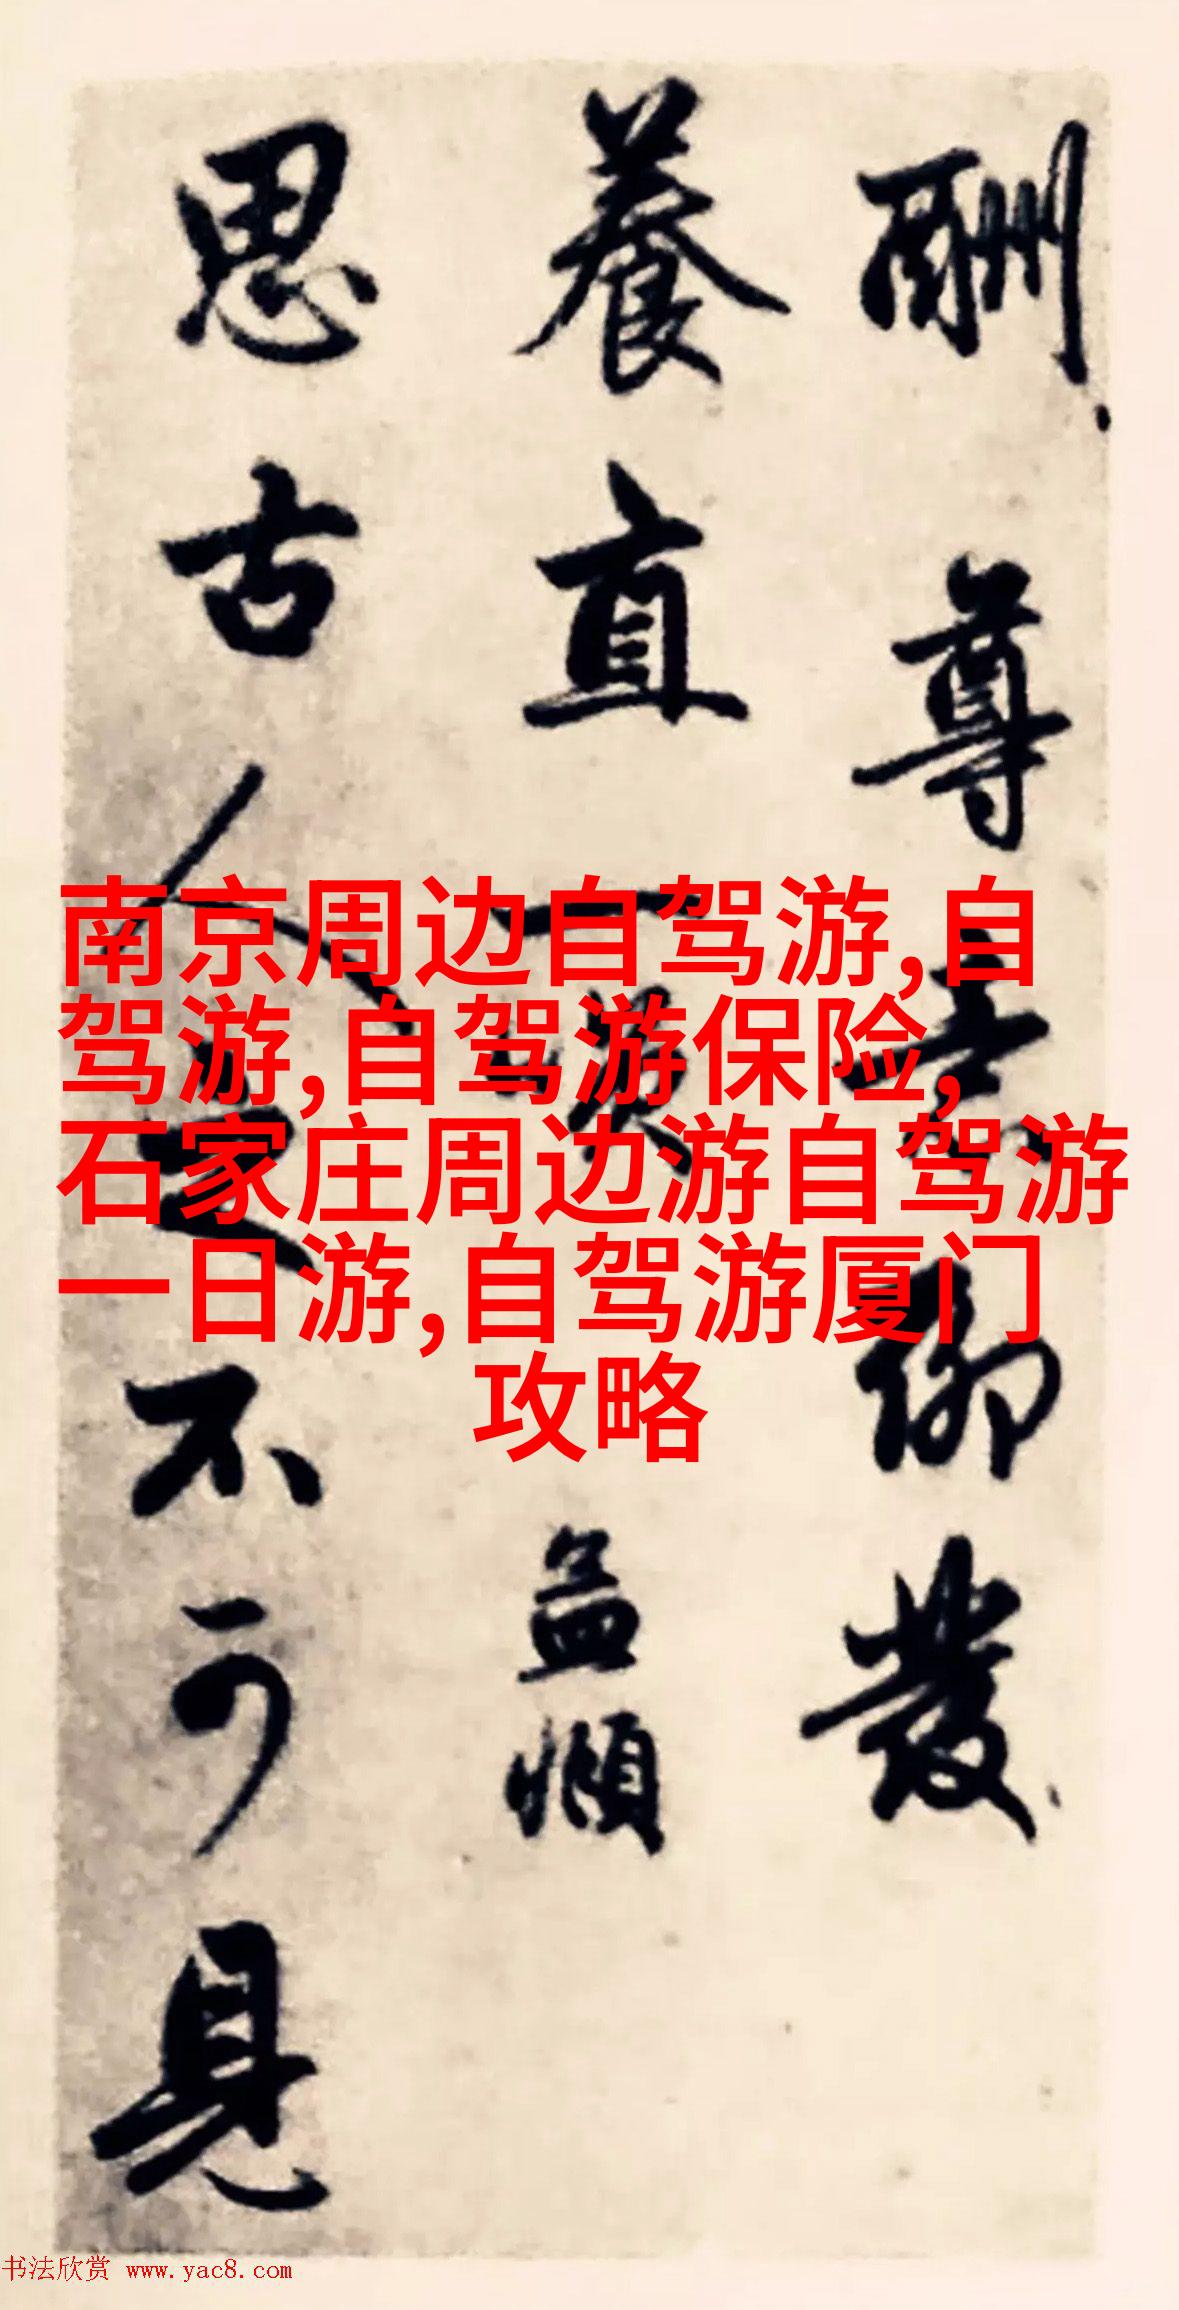 酬尊言聊發
養直一
益愧
思古人不可見
南京周边自驾游,自
驾游,自驾游保险,
石家庄周边游自驾游
一日游,自驾游厦门
攻略
书法欣赏 www.yac8.com